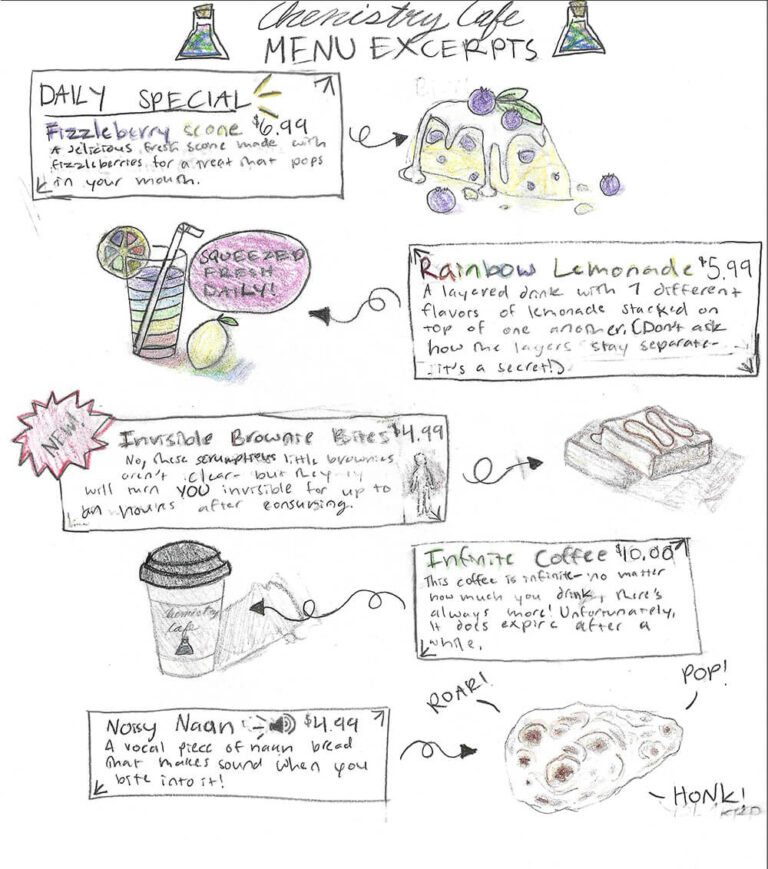 Chemistry Cafe
MENU EXCERPTS
DAILY SPECIAL
Fizzleberry scone $6.99
A delicious fresh scone made with
fizzleberries for a treat that pops
in your mouth.
SQUEEZED
FRESH
DAILY!
Rainbow Lemonade $5.99
A layered drink with 7 different
flavors of lemonade stacked on
top of one another. (Don't ask
how the layers stay separate-
it's a secret!)
NEW!
Invisible Brownie Bites $4.99
No, these scrumptious little brownies
aren't clear- but they
will turn YOU invisible for up to
hours after consuming.
Infinite Coffee $10.00
This coffee is infinite- no matter
how much you drink, there's
always more! Unfortunately,
it does expire after a
while.
Chemistry
Cafe
Noisy Naan $4.99
A vocal piece of naan bread
that makes sound when you
bite into it!
ROAR!
POP!
HONK!